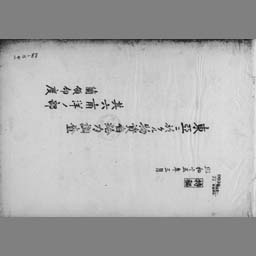 昭和十五年三月
東亞ニ於ケル物資自給力調査
其六 南洋ノ部
蘭領印度